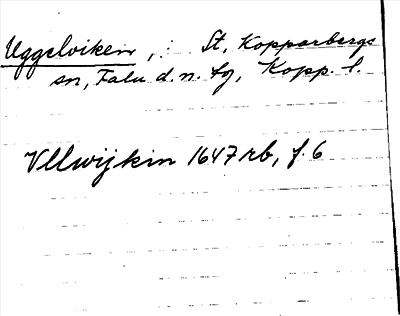 Uggelviken, : St. Kopparbergs
sn, Falu d.n. fg, Kopp. l.
Vllwijkin 1647 rb, f. 6